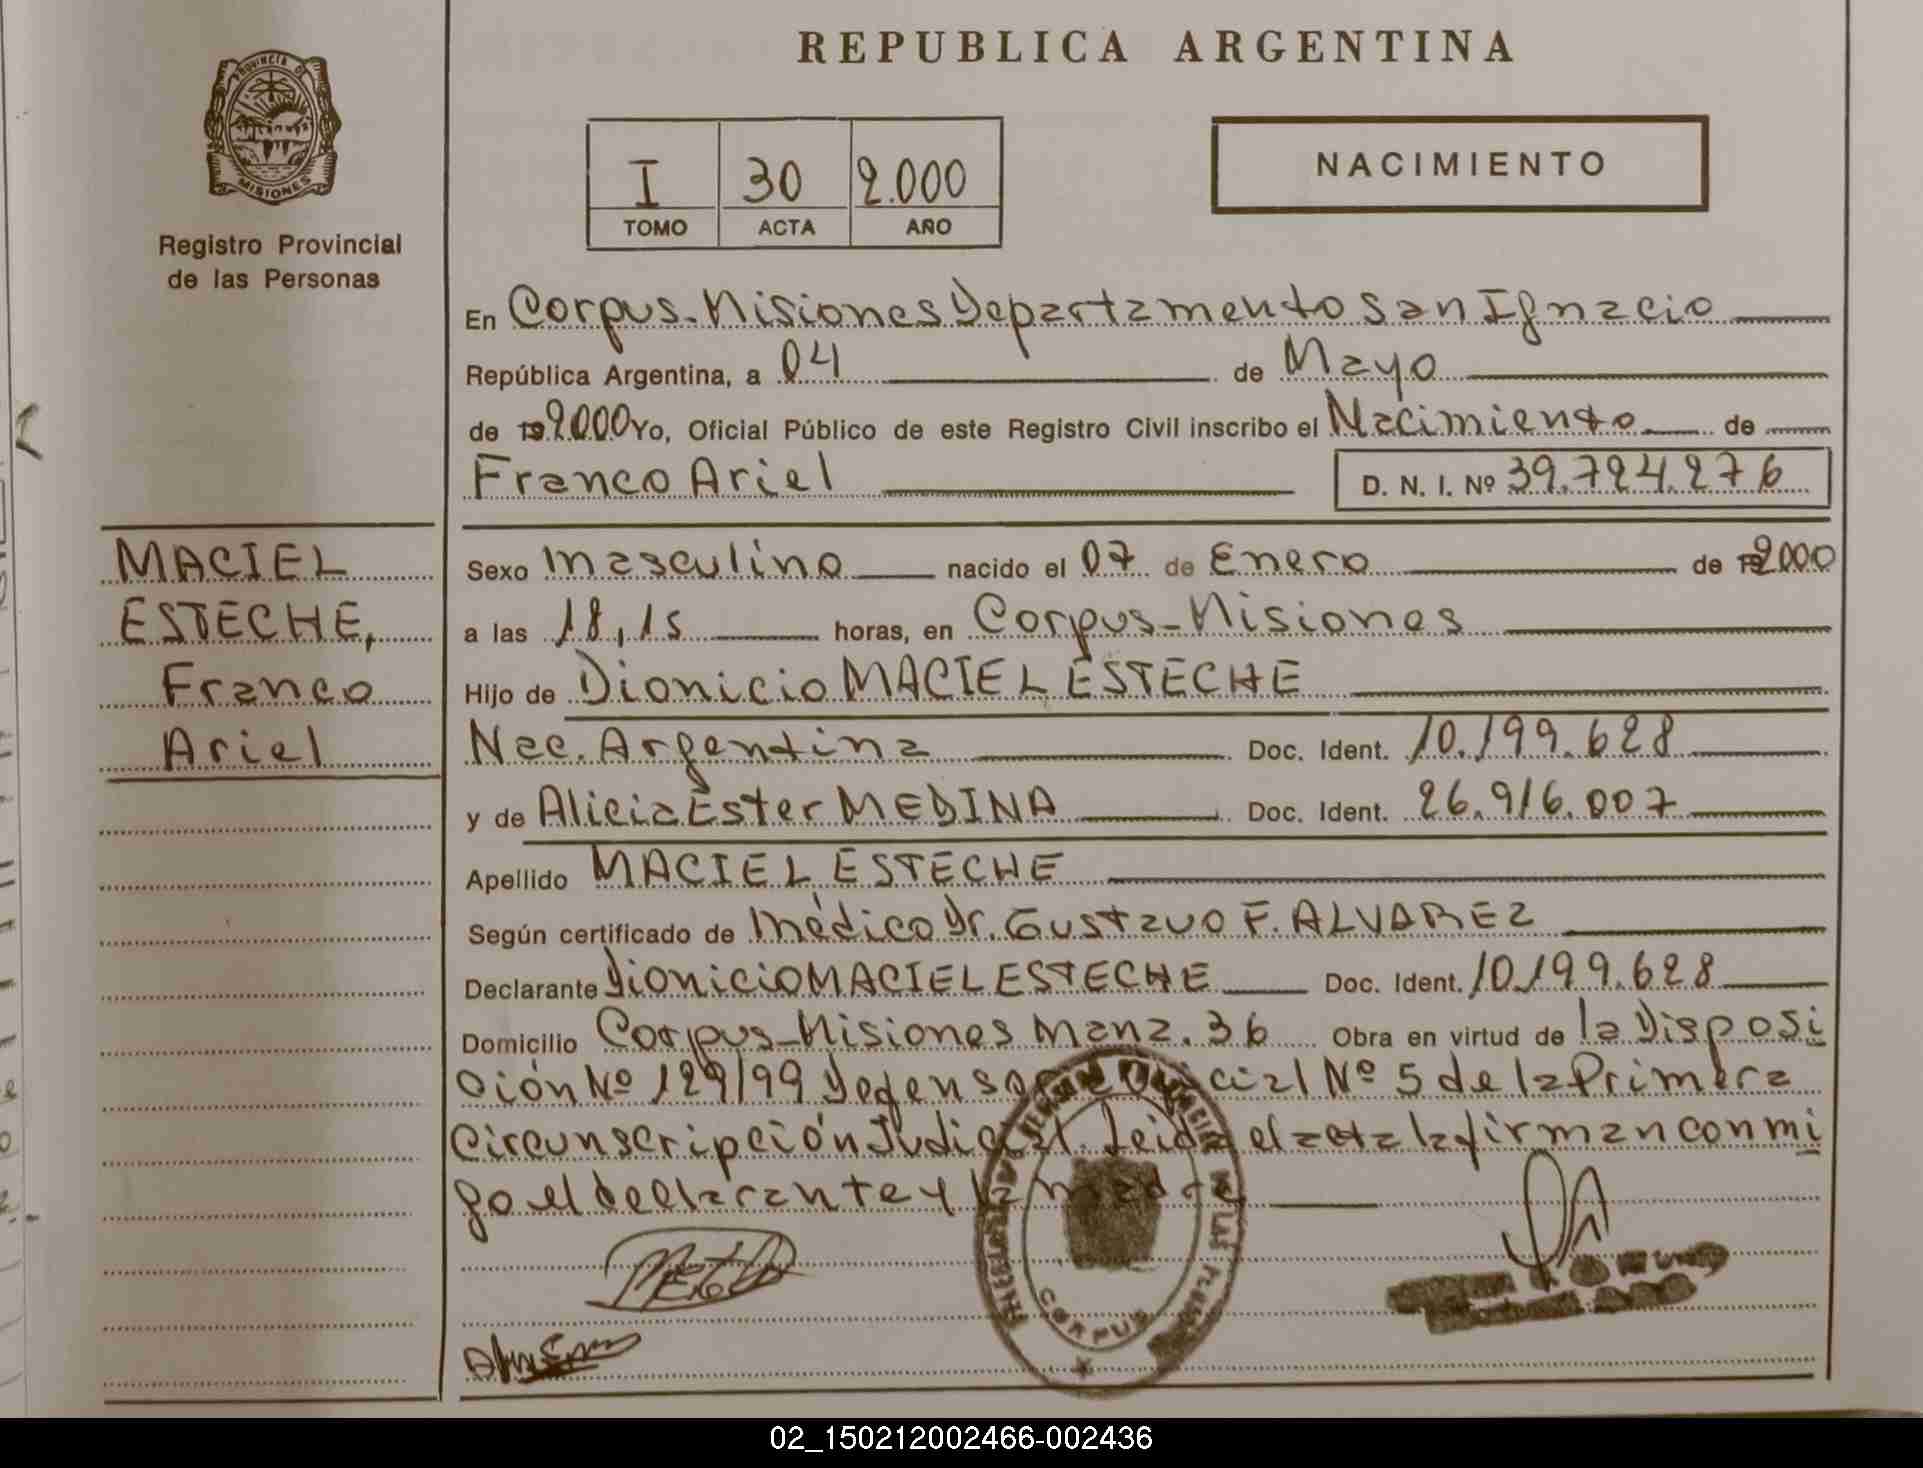 REPUBLICA ARGENTINA
PROVINCIA DE
MISIONES
Registro Provincial
de las Personas
I 30 2.000
TOMO ACTA AÑO
NACIMIENTO
En Corpus-Misiones Departamento San Ignacio
República Argentina, a 04 de Mayo
de 19 2.000 Yo, Oficial Público de este Registro Civil inscribo el Nacimiento de
Franco Ariel D. N. I. Nº 39.724.276
MACIEL
ESTECHE,
Franco
Ariel
Sexo masculino nacido el 07 de Enero de 19 2000
a las 18,15 horas, en Corpus-Misiones
Hijo de Dionicio MACIEL ESTECHE
Nac. Argentina Doc. Ident. 10.199.628
y de Alicia Ester MEDINA Doc. Ident. 26.916.007
Apellido MACIEL ESTECHE
Según certificado de médico Dr. Gustavo F. ALVAREZ
Declarante Dionicio MACIEL ESTECHE Doc. Ident. 10.199.628
Domicilio Corpus-Misiones Manz. 36 Obra en virtud de la Disposi
ción Nº 129/99 Defensoria Oficial Nº 5 de la Primera
Circunscripción Judicial. Leida el acta la firman conmi
go el declarante y la madre
CORPUS
02_150212002466-002436